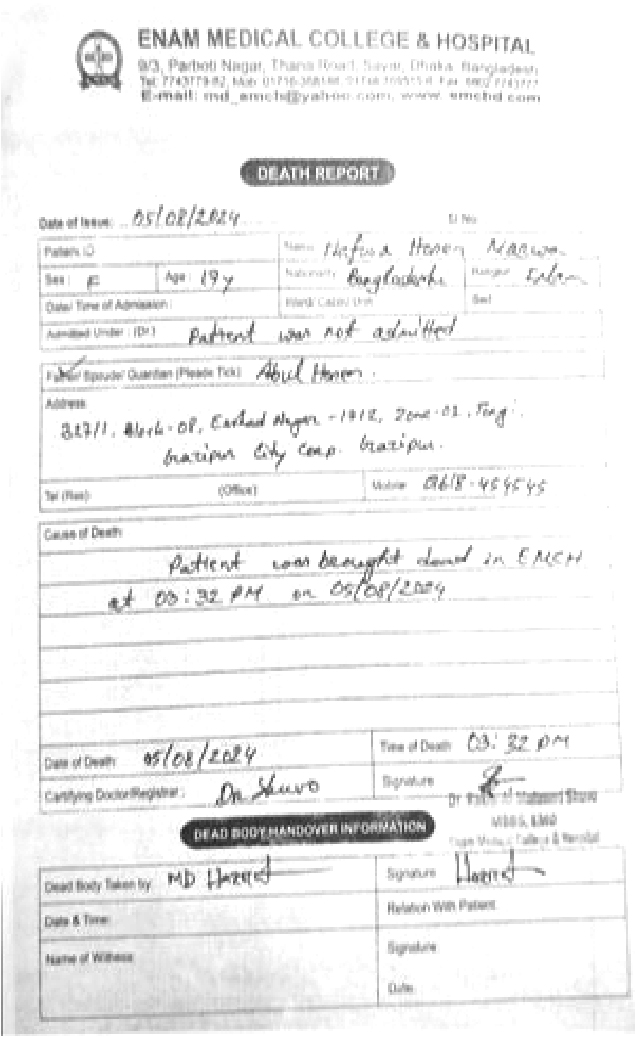 ENAM MEDICAL COLLEGE & HOSPITAL
9/3, Parboti Nagar, Thana Road, Savar, Dhaka, Bangladesh
E-mail: md_emch@yahoo.com, www.emchd.com
DEATH REPORT
Date of Issue: 05/08/2024 Sl No
Patient ID Name: Hosen
Sex: F Age: 19y Nationality Bangladeshi Religion Islam
Date/ Time of Admission: Ward/ Cabin/ Unit Bed
Admitted Under: (Dr.) Patient was not admitted
Father/ Spouse/ Guardian (Please Tick) Abul Hosen.
Address
327/1, Block-08, Ershad Nagar - 1712, Zone-01, Tongi
Gazipur City Corp. Gazipur.
Tel (Res): (Office): Mobile
Cause of Death:
Patient was brought dead in EMCH
at 03:32 PM on 05/08/2024
Date of Death: 05/08/2024 Time of Death 03:32 PM
Certifying Doctor/Registrar: Dr. Shuvo Signature
MBBS, EMO
Enam Medical College & Hospital
DEAD BODY HANDOVER INFORMATION
Dead Body Taken by: MD Hazrat Signature Hazrat
Date & Time: Relation With Patient:
Name of Witness: Signature
Date: